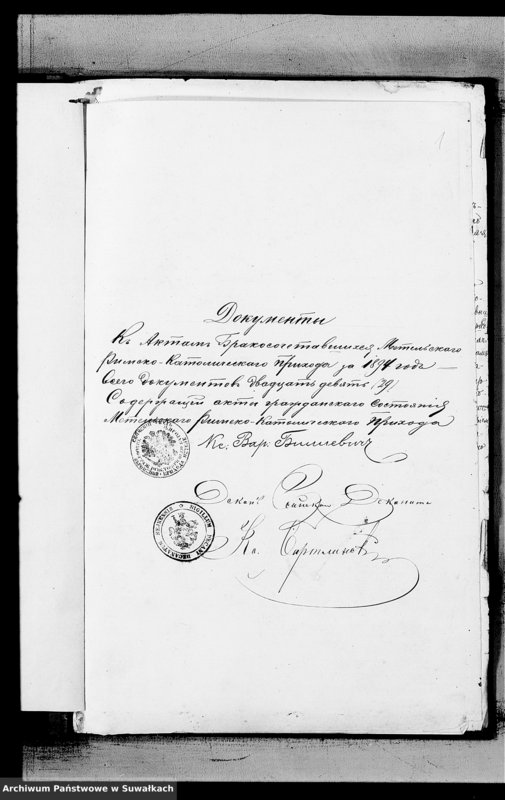 1
Документы
Къ Актамъ Бракосочетавшихся Метельскаго
Римско-Католическаго прихода за 1894 годъ —
Всего документовъ двадцать девять (29)
Содержащій акты гражданскаго состоянія
Метельскаго Римско-Католическаго Прихода
Кс. Вар.
Деканъ Деканата
Кс.
SIGILLUM DECANI DECANATUS SEJNENSIS
Archiwum Państwowe w Suwałkach